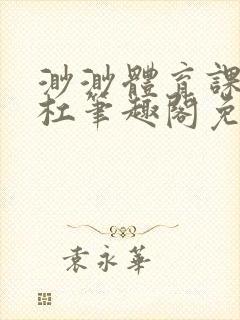 渺渺體育課
杜筆趣閣免
袁永華